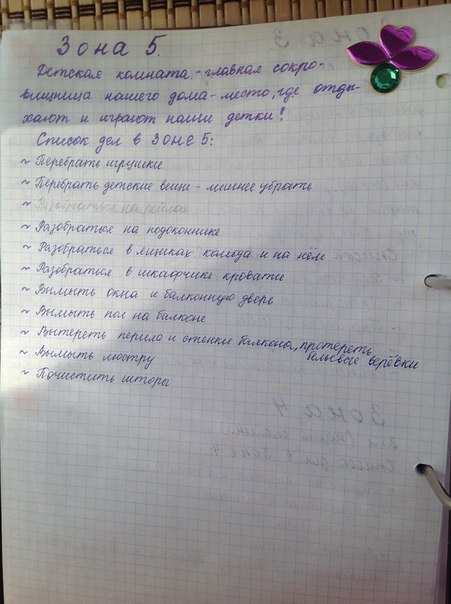 Зона 5.
Детская комната - главная сокро-
вищница нашего дома - место, где отды-
хают и играют наши детки!
Список дел в Зоне 5:
~ Перебрать игрушки
~ Перебрать детские вещи - лишнее убрать
~ Разобраться на
~ Разобраться на подоконнике
~ Разобраться в ящиках комода и на нём
~ Разобраться в шкафчике кровати
~ Вымыть окна и балконную дверь
~ Вымыть пол на балконе
~ Вытереть перила и стенки балкона, протереть
бельевые верёвки
~ Вымыть люстру
~ Почистить шторы